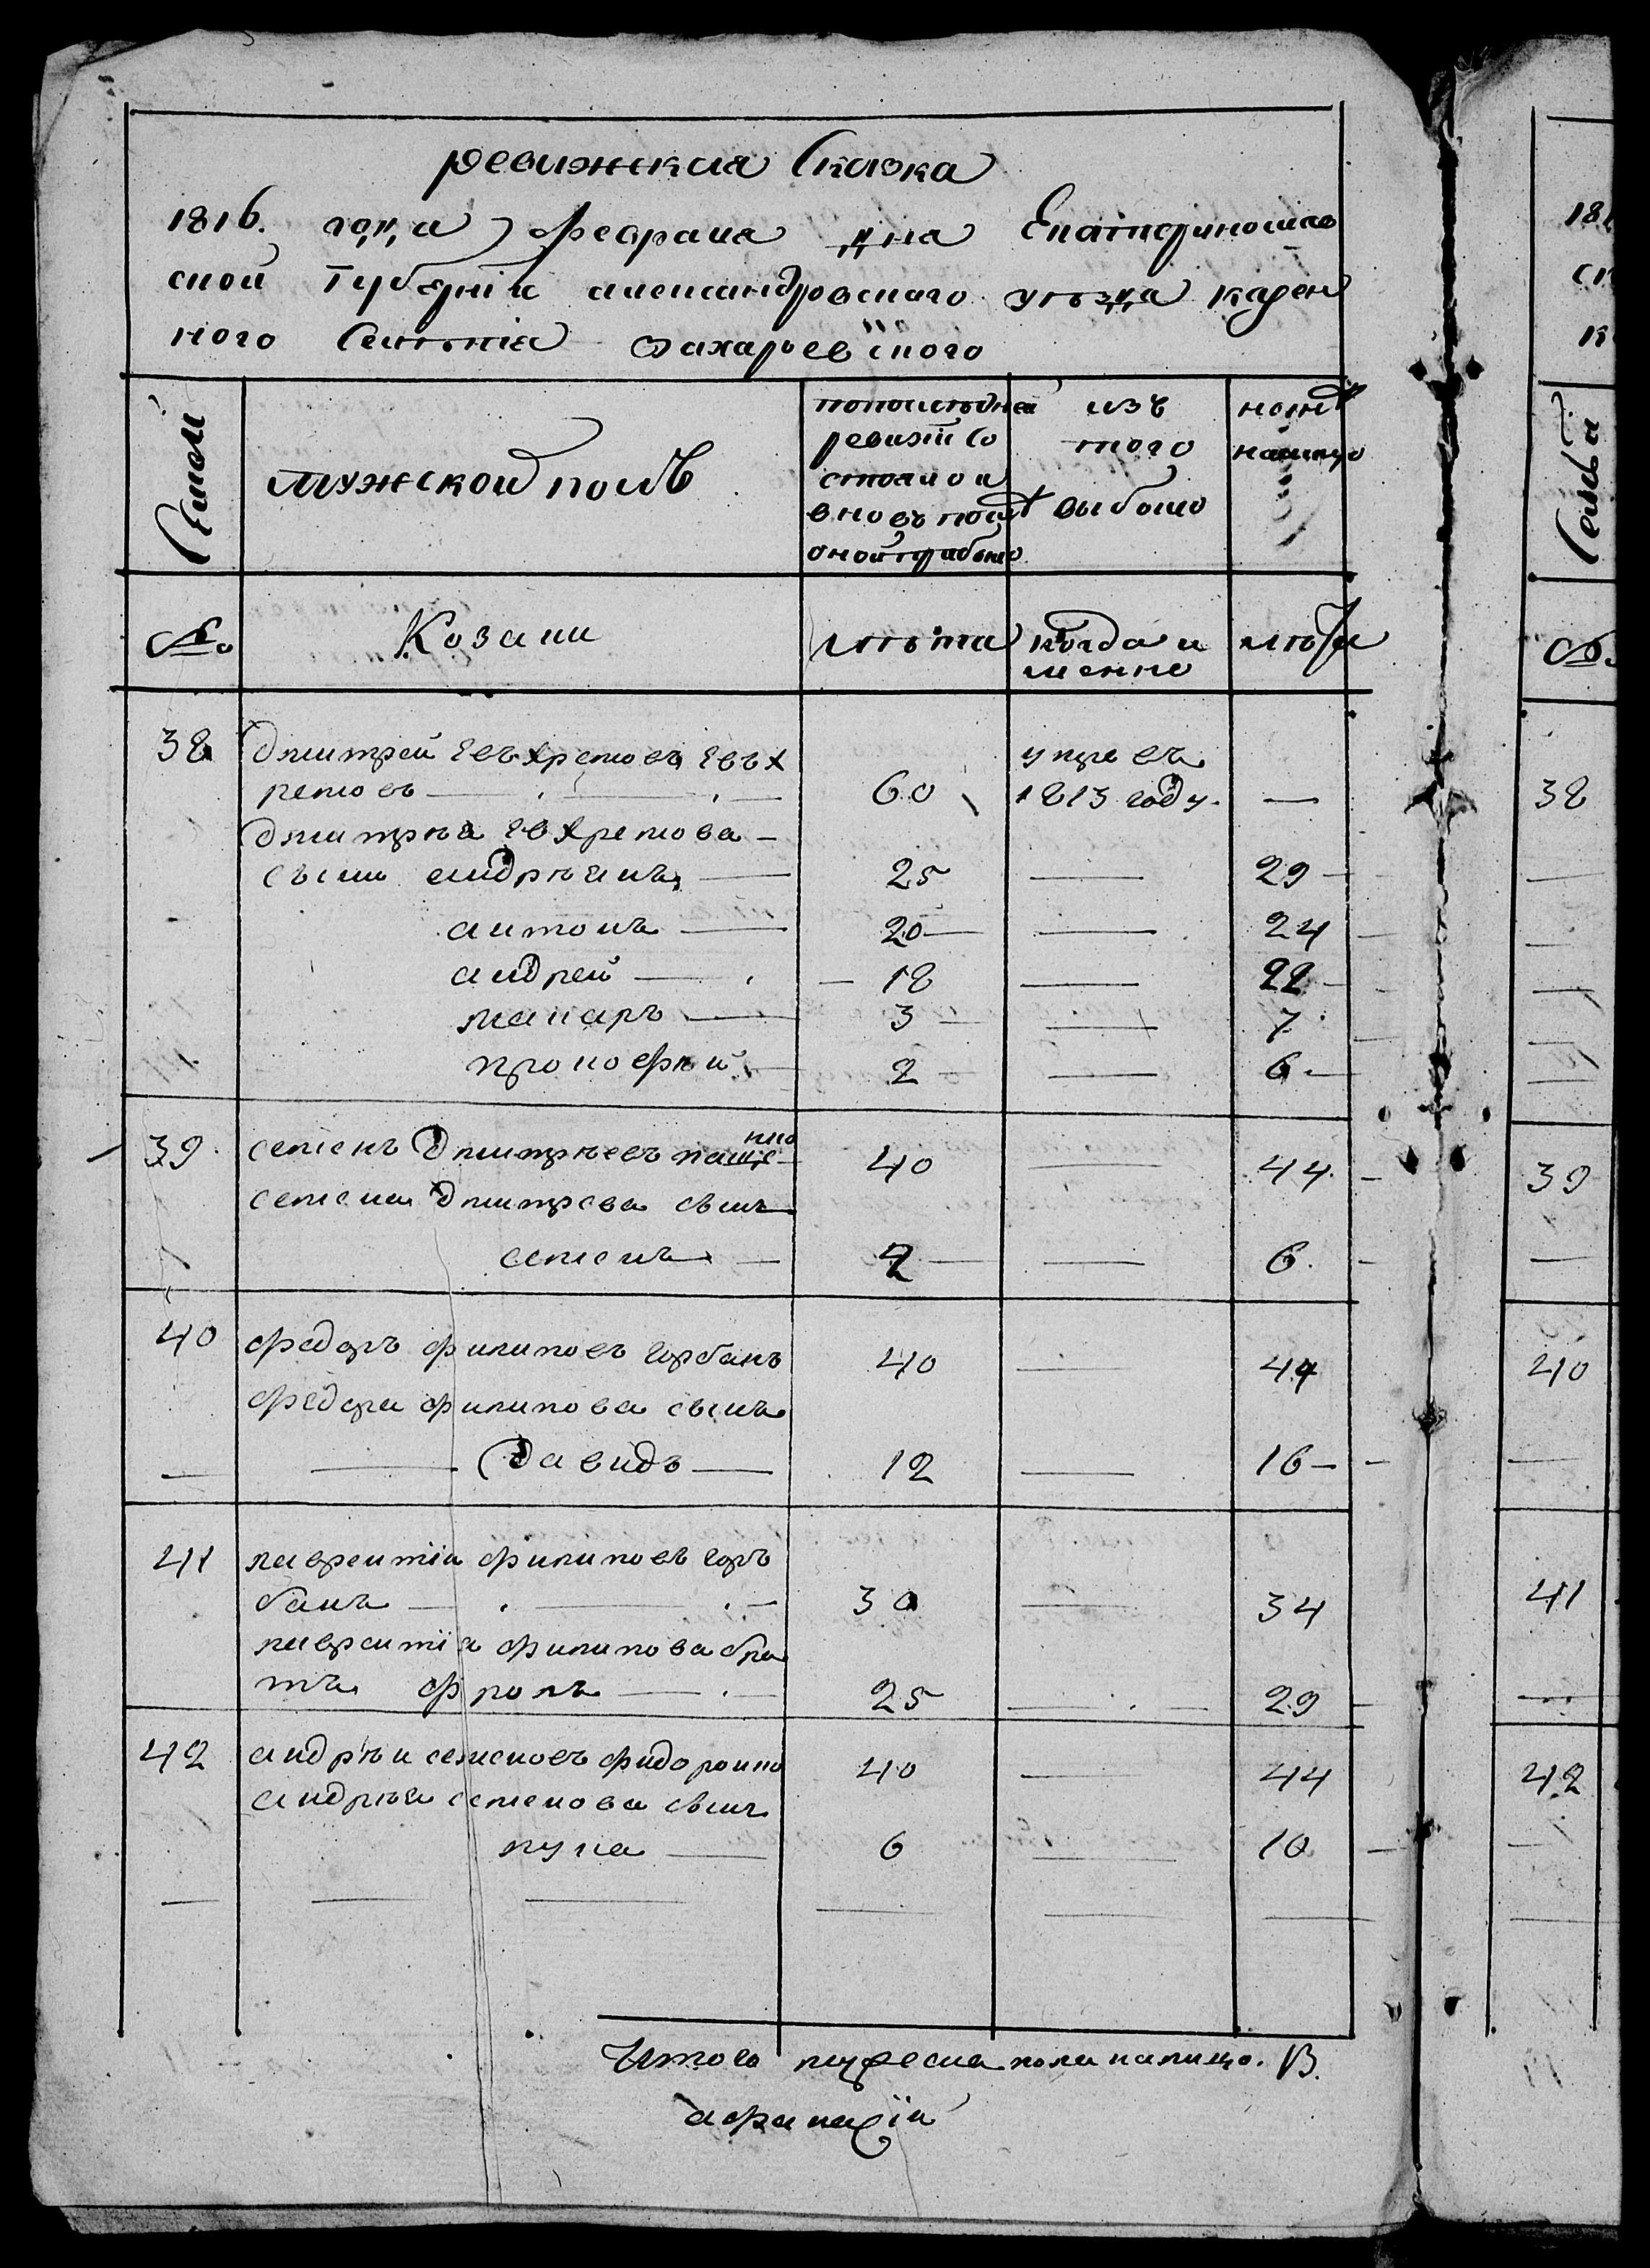 ревижская Сказка
1816. года февраля дня Екатеринослав
ской Губернїи александровского уѣзда казен
ного Селѣнїя захарьевского
Семьи
мужской полъ
попослѣдней
ревизїи со
стояло и
вновь послѣ
оной прибыло
изъ
того
выбыло
нынѣ
налицо
№
Козаки
лѣта
когда и
менно
лѣта
38
дмитрей евъхремовъ евъх
ремовъ
60
умре въ
1813 году.
—
дмитрѣя евхремова
сыны андрѣянъ
25
29
антонъ
20
24
андрей
18
22
макаръ
3
7
прокофѣй
2
6
39
семенъ дмитрѣевъ
40
44
семена дмитрева сынъ
семенъ
2
6
40
федоръ филиповъ горбань
40
44
федора филипова сынъ
давидъ
12
16
41
лаврентїи филиповъ горъ
банъ
30
34
лаврентїя филипова бра
тъ фролъ
25
29
42
андрѣи семеновъ фидоренко
40
44
андрѣя семенова сынъ
лука
6
10
Итого мужеска пола налицо. 13.
афанасїи
181
38
39
40
41
42